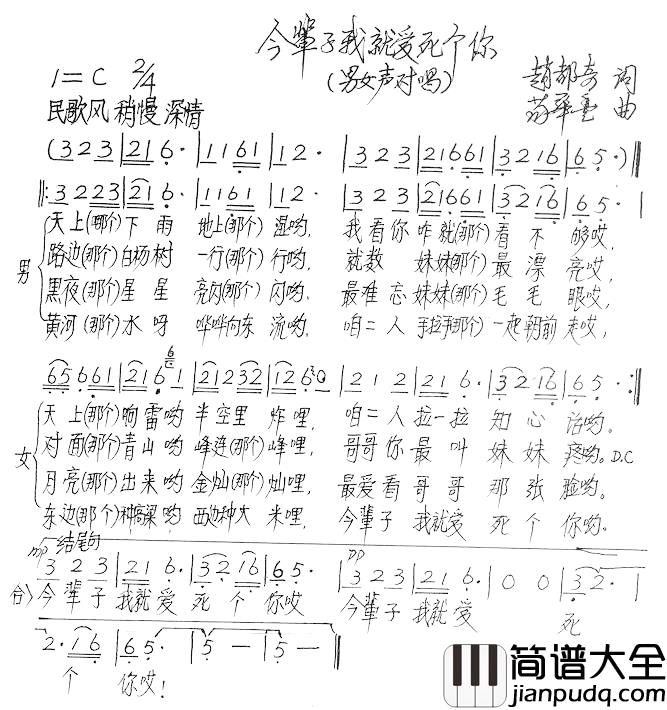 今辈子我就爱死个你
(男女声对唱)
1=C 2/4
民歌风 稍慢 深情
赵都奇 词
曲
(3 2 3 | 21 6· | 11 61 | 12· | 3 2 3 | 21661 | 32 16 | 65·) ‖
‖: 3 2 23 | 21 6· | 11 61 | 12· | 3 2 3 | 21661 | 32 16 | 65· |
男
天上(那个)下雨 地上(那个)湿哟, 我看你咋就(那个)看不够哎,
路边(那个)白杨树 一行(那个)行哟, 就数 妹妹(那个)最漂亮哎,
黑夜(那个)星星 亮闪(那个)闪哟, 最难忘妹妹(那个)毛毛眼哎,
黄河(那个)水呀 哗哗向东流哟, 咱二人手拉手(那个)一起朝前走哎,
65 661 | 21 6 1 | 21 2 32 | 12 6 0 | 2 1 2 | 21 6· | 32 16 | 65· :‖
女
天上(那个)响雷哟 半空里炸哩, 咱二人拉一拉知心话哟。
对面(那个)青山哟 峰连(那个)峰哩, 哥哥你最叫妹妹疼哟。D.C
月亮(那个)出来哟 金灿(那个)灿哩, 最爱看哥哥那张脸哟。
东边(那个)种高粱哟 西边种大米哩, 今辈子我就爱死个你哟。
mp 结尾句 pp
3 2 3 | 21 6· | 32 16 | 65· | 3 2 3 | 21 6· | 0 0 | 32· |
合〉今辈子我就爱死个你哎 今辈子我就爱 死
2· 16 | 65· | 5 — | 5 — ‖
个 你哎!
简谱大全
jianpudq.com